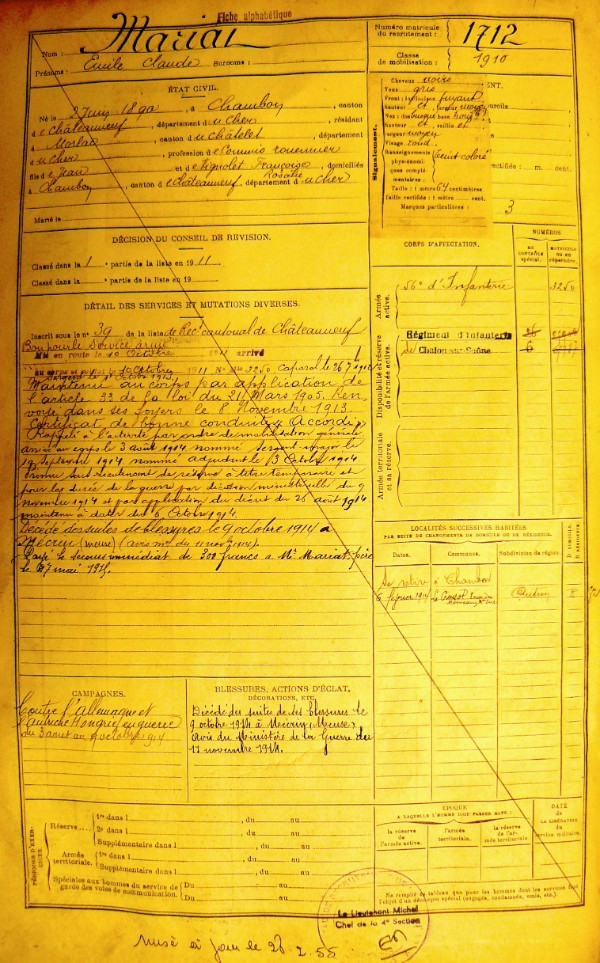 Fiche alphabétique
Nom : Mariat
Prénoms : Emile Claude Surnoms :
Numéro matricule du recrutement : 1712
Classe de mobilisation : 1910
ÉTAT CIVIL.
Né le 2 Juin 1890, à Chambon, canton
d e Châteauneuf, département d u Cher, résidant
à Morlac, canton d u Châtelet, département
d u Cher, profession d e Commis
fils d e Jean et d e Françoise Rosalie, domiciliés
à Chambon, canton d e Châteauneuf, département d u Cher
Marié le
Signalement.
Cheveux noirs
Yeux gris
Front : inclinaison fuyant
hauteur
Nez : dos busqué base
hauteur saillie et
largeur moyen
Visage rond
Renseignements physionomiques complémentaires : teint coloré
Taille : 1 mètre 64 centimètres
Taille rectifiée : 1 mètre cent.
Marques particulières :
3
DÉCISION DU CONSEIL DE RÉVISION.
Classé dans la 1e partie de la liste en 1911
Classé dans la partie de la liste en 19
DÉTAIL DES SERVICES ET MUTATIONS DIVERSES.
Inscrit sous le n° 39 de la liste de Rec. cantonal de Châteauneuf
Bon pour le Service armé
Mis en route le 10 Octobre 1911 arrivé
au corps 10 octobre 1911 N° Mle 3250 Caporal le 26 7 1912
Sergent le
Maintenu au corps par application de
l'article 33 de la loi du 21 Mars 1905. Ren
voyé dans ses foyers le 8 Novembre 1913.
Certificat de bonne conduite "Accordé"
Rappelé à l'activité par ordre de mobilisation générale
arrivé au corps le 3 août 1914 nommé sergent major le
septembre 1914 nommé adjudant le 3 Octobre 1914
nommé sous lieutenant de réserve à titre temporaire et
pour la durée de la guerre par décision ministérielle du 9
novembre 1914 et par application du décret du 26 août 1914
maintenu à dater du 6 Octobre 1914.
Décédé des suites de blessures le 9 octobre 1914 à
Mécrin (Meuse) (avis du 11 nov. 1914).
Payé le secours immédiat de 300 francs à Mr. Mariat, père
le 27 mai 1915.
CORPS D'AFFECTATION.
NUMÉROS
AU CONTRÔLE spécial.
MATRICULE OU AU répertoire.
Armée active.
56e d'Infanterie
3250
Disponibilité et réserve de l'armée active.
Régiment d'Infanterie
de Chalon-sur-Saône
Armée territoriale et sa réserve.
LOCALITÉS SUCCESSIVES HABITÉES
PAR SUITE DE CHANGEMENTS DE DOMICILE OU DE RÉSIDENCE.
Dates.
Communes.
Subdivision de région.
D. DOMICILE. R. RÉSIDENCE.
Se retire à Chambon
6 février 1914 Le Creusot Autun R
CAMPAGNES.
Contre l'allemagne et
l'autriche Hongrie en guerre
du 3 aout au 9 octobre 1914
BLESSURES, ACTIONS D'ÉCLAT,
DÉCORATIONS, ETC.
Décédé des suites de ses blessures le
9 octobre 1914 à Mécrin, (Meuse),
Avis du Ministère de la Guerre du
11 novembre 1914.
PÉRIODES D'EXERCICES.
Réserve.
1re dans l , du au
2e dans l , du au
Supplémentaire dans l , du au
Armée territoriale.
1re dans l , du au
Supplémentaire dans l , du au
Spéciales aux hommes du service de garde des voies de communication.
Du au
Du au
ÉPOQUE
A LAQUELLE L'HOMME DOIT PASSER DANS :
la réserve de l'armée active.
l'armée territoriale.
la réserve de l'armée territoriale.
DATE DE LA LIBÉRATION du service militaire.
Ne remplir ce tableau que pour les hommes dont les services font l'objet d'un décompte spécial (engagés, condamnés, omis, etc.).
Le Lieutenant Michel
Chef de la 4e Section
Mise à jour le 26.2.55